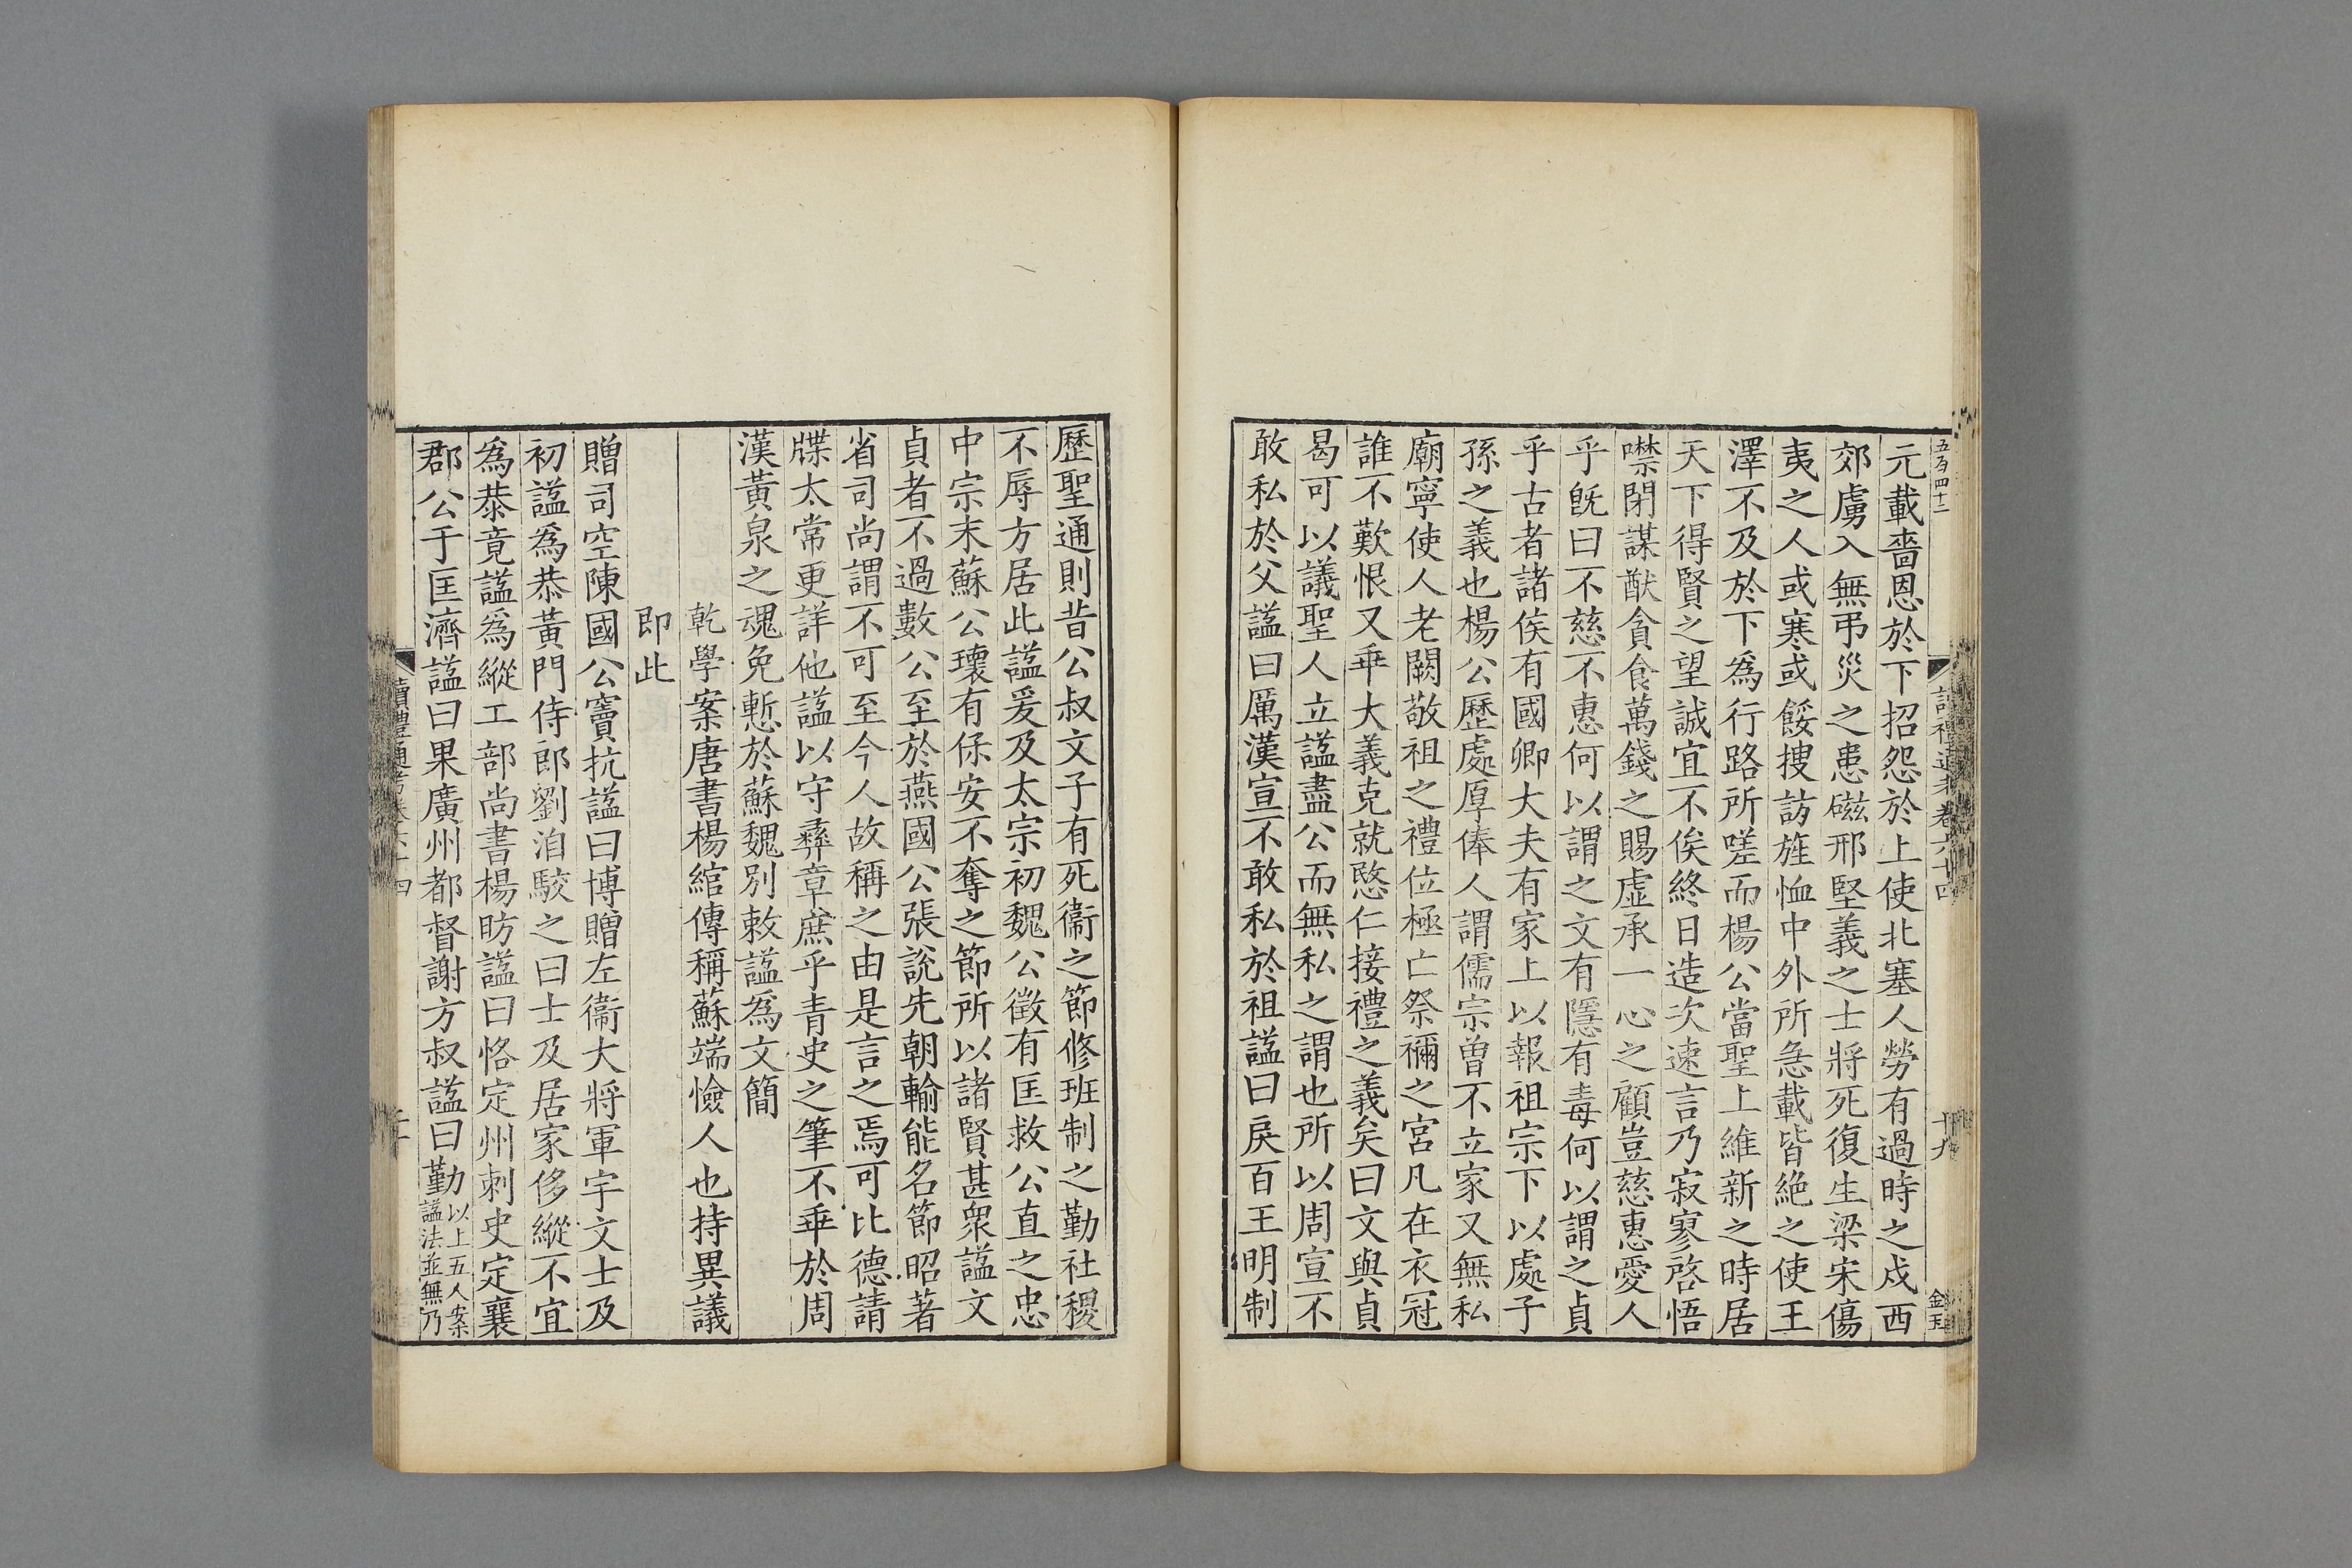 五百四十二
元載嗇恩於下招怨於上使北塞人勞有過時之戍西
郊虜入無弔災之患磁邢堅義之士將死復生梁宋傷
夷之人或寒或餒搜訪旌恤中外所急載皆絶之使王
澤不及於下爲行路所嗟而楊公當聖上維新之時居
天下得賢之望誠宜不俟終日造次速言乃寂寥啓悟
噤閉謀猷貪食萬錢之賜虛承一心之顧豈慈惠愛人
乎旣曰不慈不惠何以謂之文有隱有毒何以謂之貞
乎古者諸侯有國卿大夫有家上以報祖宗下以處子
孫之義也楊公歷處厚俸人謂儒宗曽不立家又無私
廟寧使人老闕敬祖之禮位極亡祭禰之宮凡在衣冠
誰不歎恨又乖大義克就愍仁接禮之義矣曰文與貞
曷可以議聖人立諡盡公而無私之謂也所以周宣不
敢私於父諡曰厲漢宣不敢私於祖諡曰戾百王明制
十九
金玉
歷聖通則昔公叔文子有死衞之節修班制之勤社稷
不辱方居此諡爰及太宗初魏公徵有匡救公直之忠
中宗末蘇公瓌有保安不奪之節所以諸賢甚衆諡文
貞者不過數公至於燕國公張說先朝輸能名節昭著
省司尚謂不可至今人故稱之由是言之焉可比德請
牒太常更詳他諡以守彝章庶乎青史之筆不垂於周
漢黃泉之魂免慙於蘇魏別敕諡爲文簡
乾學案唐書楊綰傳稱蘇端憸人也持異議
即此
贈司空陳國公竇抗諡曰博贈左衞大將軍宇文士及
初諡爲恭黃門侍郎劉洎駮之曰士及居家侈縱不宜
爲恭竟諡爲縱工部尚書楊昉諡曰恪定州刺史定襄
郡公于匡濟諡曰果廣州都督謝方叔諡曰勤以上五人案
諡法並無乃
讀禮通考卷六十四
二十